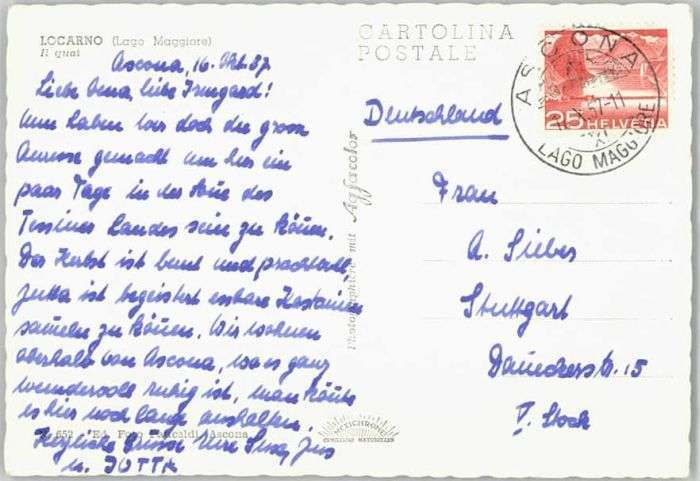 LOCARNO (Lago Maggiore)
Il quai
Ascona, 16. Okt. 57
Liebe Oma, liebe Irmgard!
Nun haben wir doch die grosse
gemacht um hier ein
paar Tage in der des
Tessiner Landes sein zu können.
Der Herbst ist bunt und prachtvoll,
Jutta ist begeistert essbare Kastanien
sammeln zu können. Wir wohnen
oberhalb von Ascona, wo es ganz
wundervoll ruhig ist, man könnte
es hier noch lang aushalten.
Herzliche Grüsse Eure
u. JUTTA
652 Ed. Foto Ascona
Photographiere mit Agfacolor
MEXICHROME
CARTOLINA
POSTALE
ASCONA
LAGO MAGGIORE
25 HELVETIA
Deutschland
Frau
A. Sieber
Stuttgart
Danneckerstr. 15
V. Stock